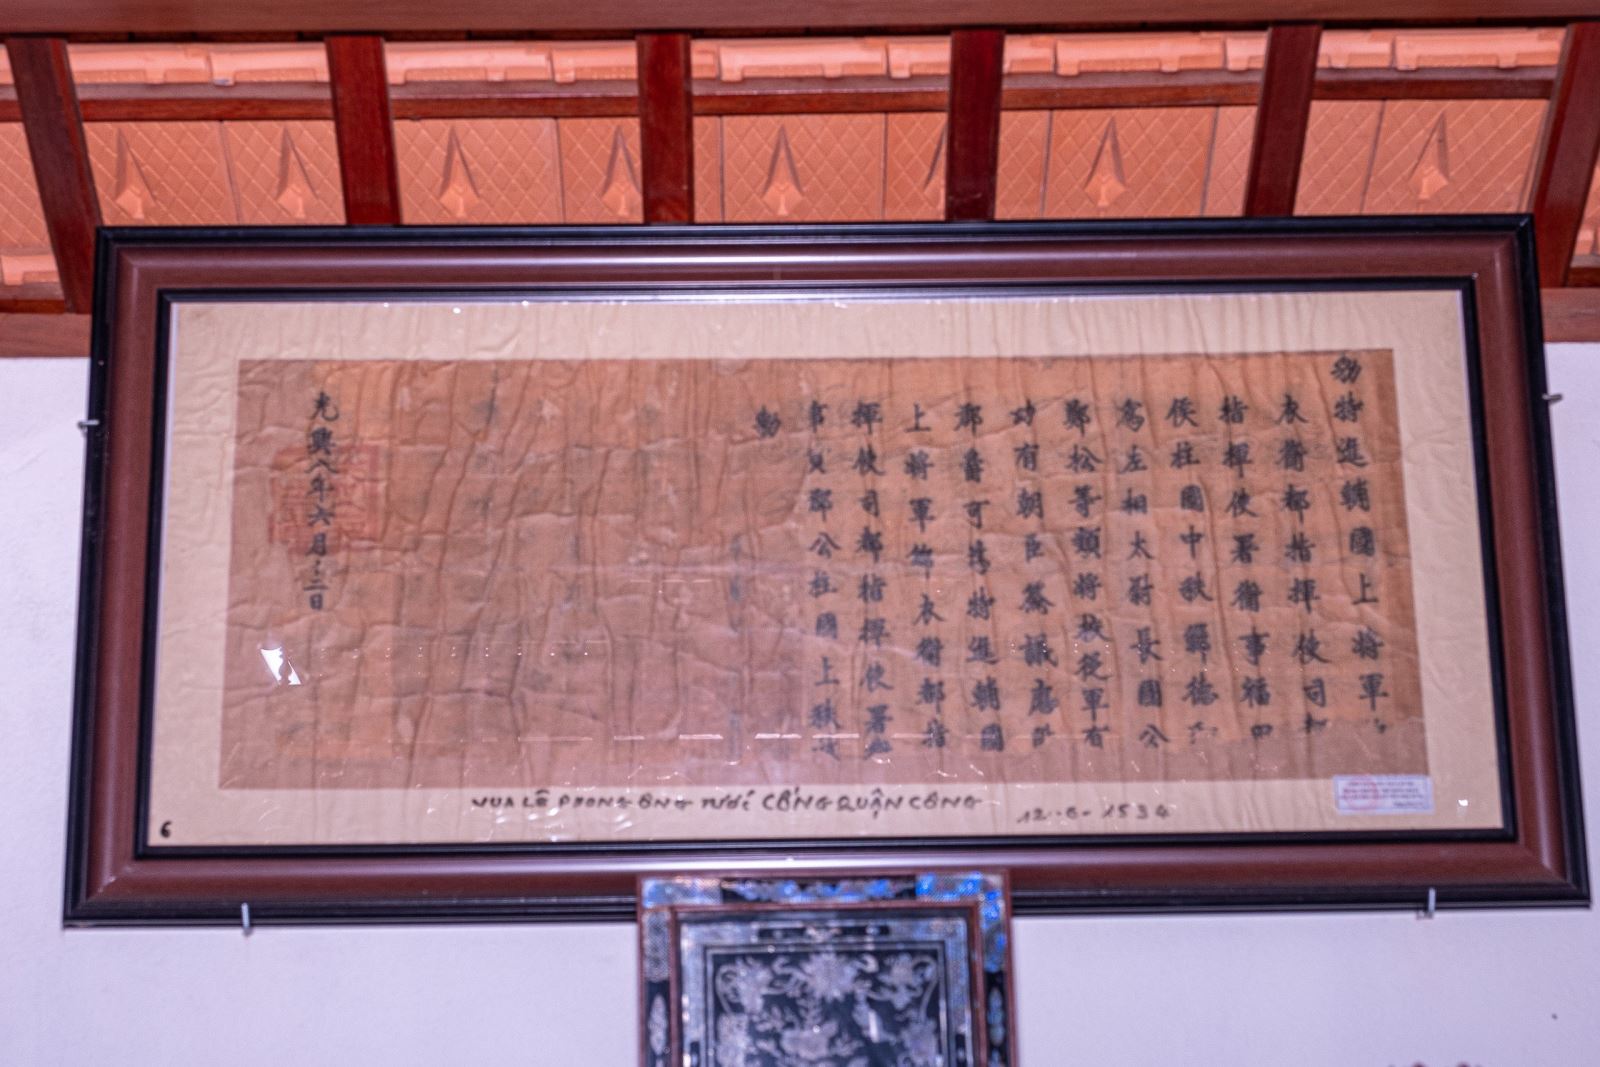 勅特進輔國上將軍
衣衛都指揮使司
指揮使署衛事福
侯柱國中秩鄭德
為左相太尉長國公
鄭松等類將校從軍有
功有朝臣簽議應
郡爵可特進輔國
上將軍錦衣衛都指
揮使司都指揮使署
郡公柱國上秩
勅
光興八年六月十二日
VUA LÊ PHONG ÔNG TƯỚC CỐNG QUẬN CÔNG 12-6-1534
6